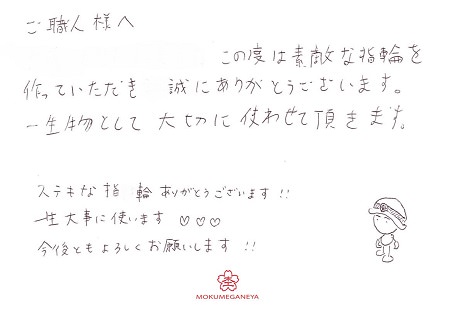 ご職人様へ
この度は素敵な指輪を
作っていただき 誠にありがとうございます。
一生物として 大切に 使わせて頂きます。
ステキな指輪ありがとうございます!!
一生大事に使います ♡♡♡
今後ともよろしくお願いします!!
MOKUMEGANEYA